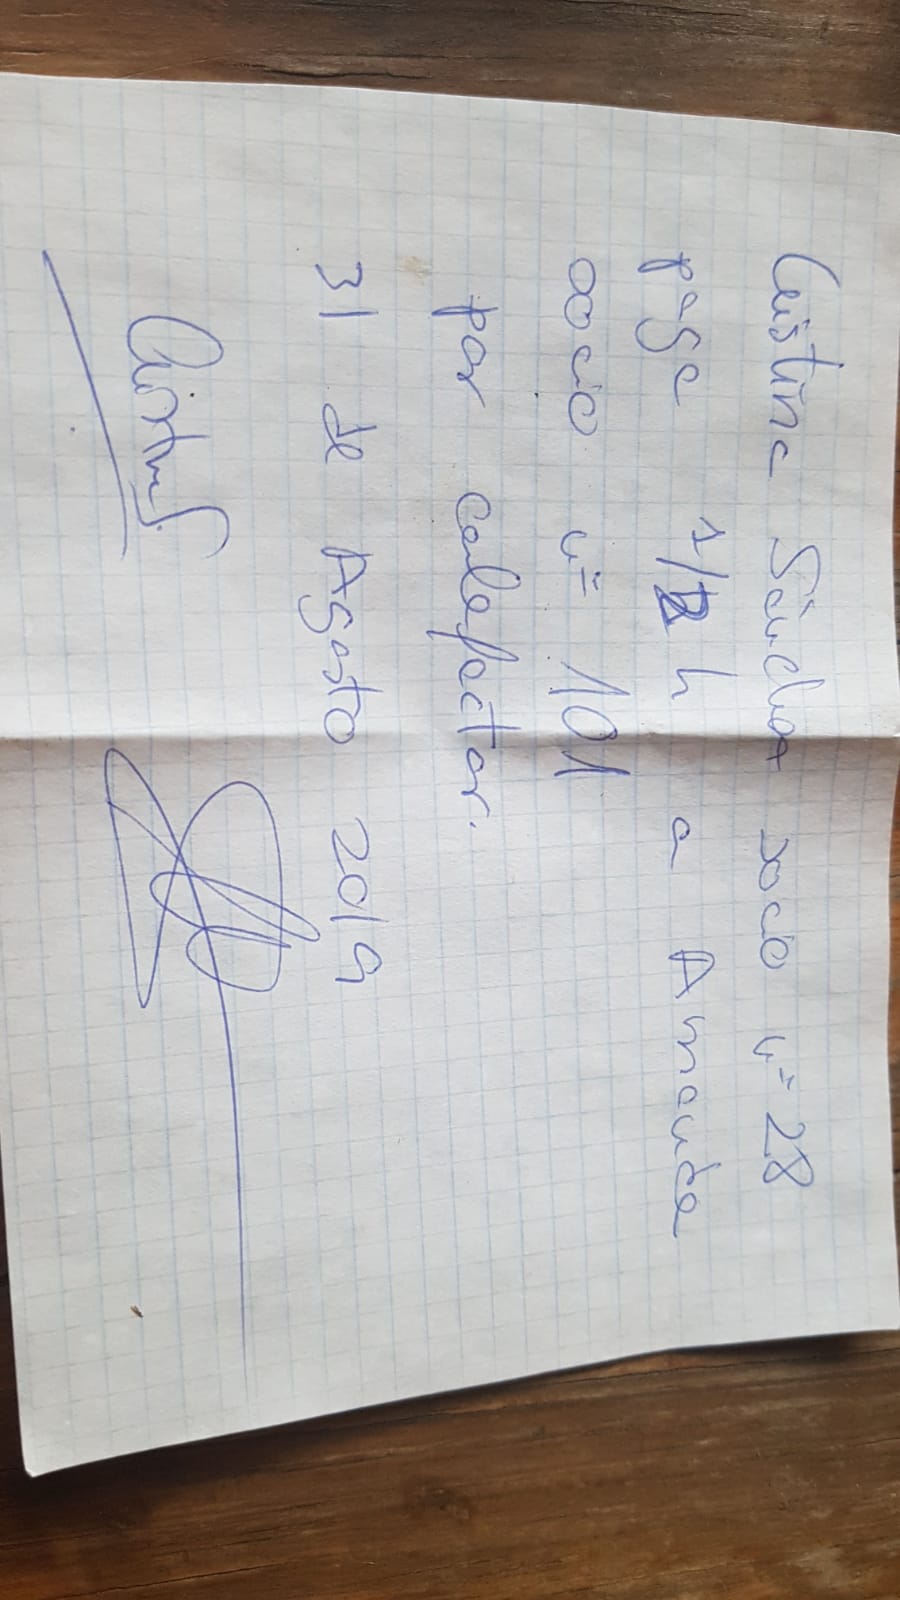 Cristina Sánchez socio nº 28
paga 1/2 h a Amanda
socio nº 101
por calefactor.
31 de Agosto 2019
Cristina S.